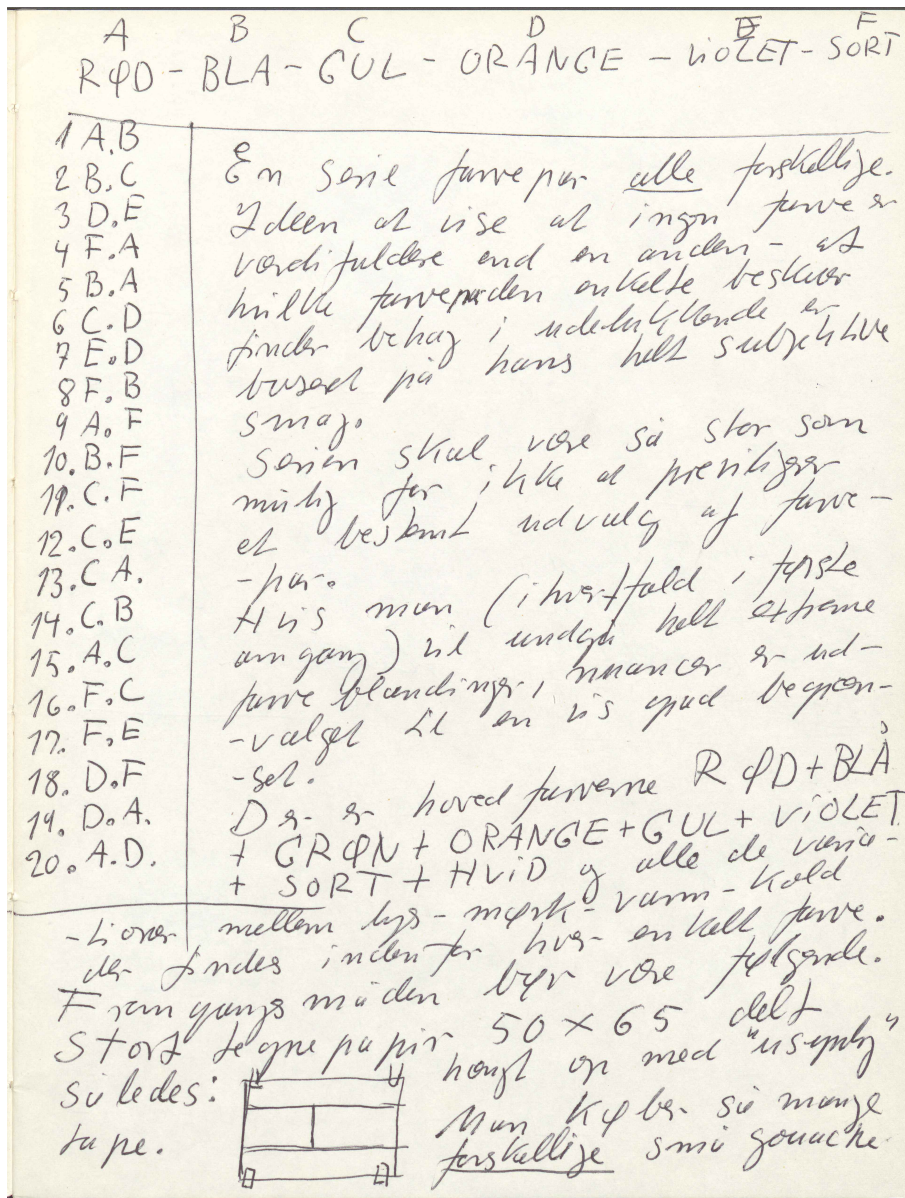 A B C D E F
RØD - BLA - GUL - ORANGE - ViOLET - SORT
1 A.B
2 B.C
3 D.E
4 F.A
5 B.A
6 C.D
7 E.D
8 F.B
9 A.F
10. B.F
11. C.F
12. C.E
13. C A.
14. C.B
15. A.C
16. F.C
17. F.E
18. D.F
19. D.A.
20. A.D.
En serie farvepar alle forskellige.
Ideen at vise at ingen farve er
værdifuldere end en anden - at
hvilke farvepar den enkelte beskuer
finder behag i udelukkende er
baseret på hans helt subjektive
smag.
Serien skal være så stor som
mulig for ikke at
et bestemt udvalg af farve-
-par.
Hvis man (i hvertfald i første
omgang) vil undgå helt extreme
farveblandinger, nuancer er ud-
-valget til en vis grad begræn-
-set.
Der er hovedfarverne RØD + BLÅ
+ GRØN + ORANGE + GUL + ViOLET
+ SORT + HViD og alle de varia-
-tioner mellem lys - mørk - varm - kold
der findes indenfor hver enkelt farve.
Fremgangsmåden bør være følgende.
Stort tegnepapir 50 x 65 delt
således: hængt op med
tape. Man køber så mange
forskellige små gouache